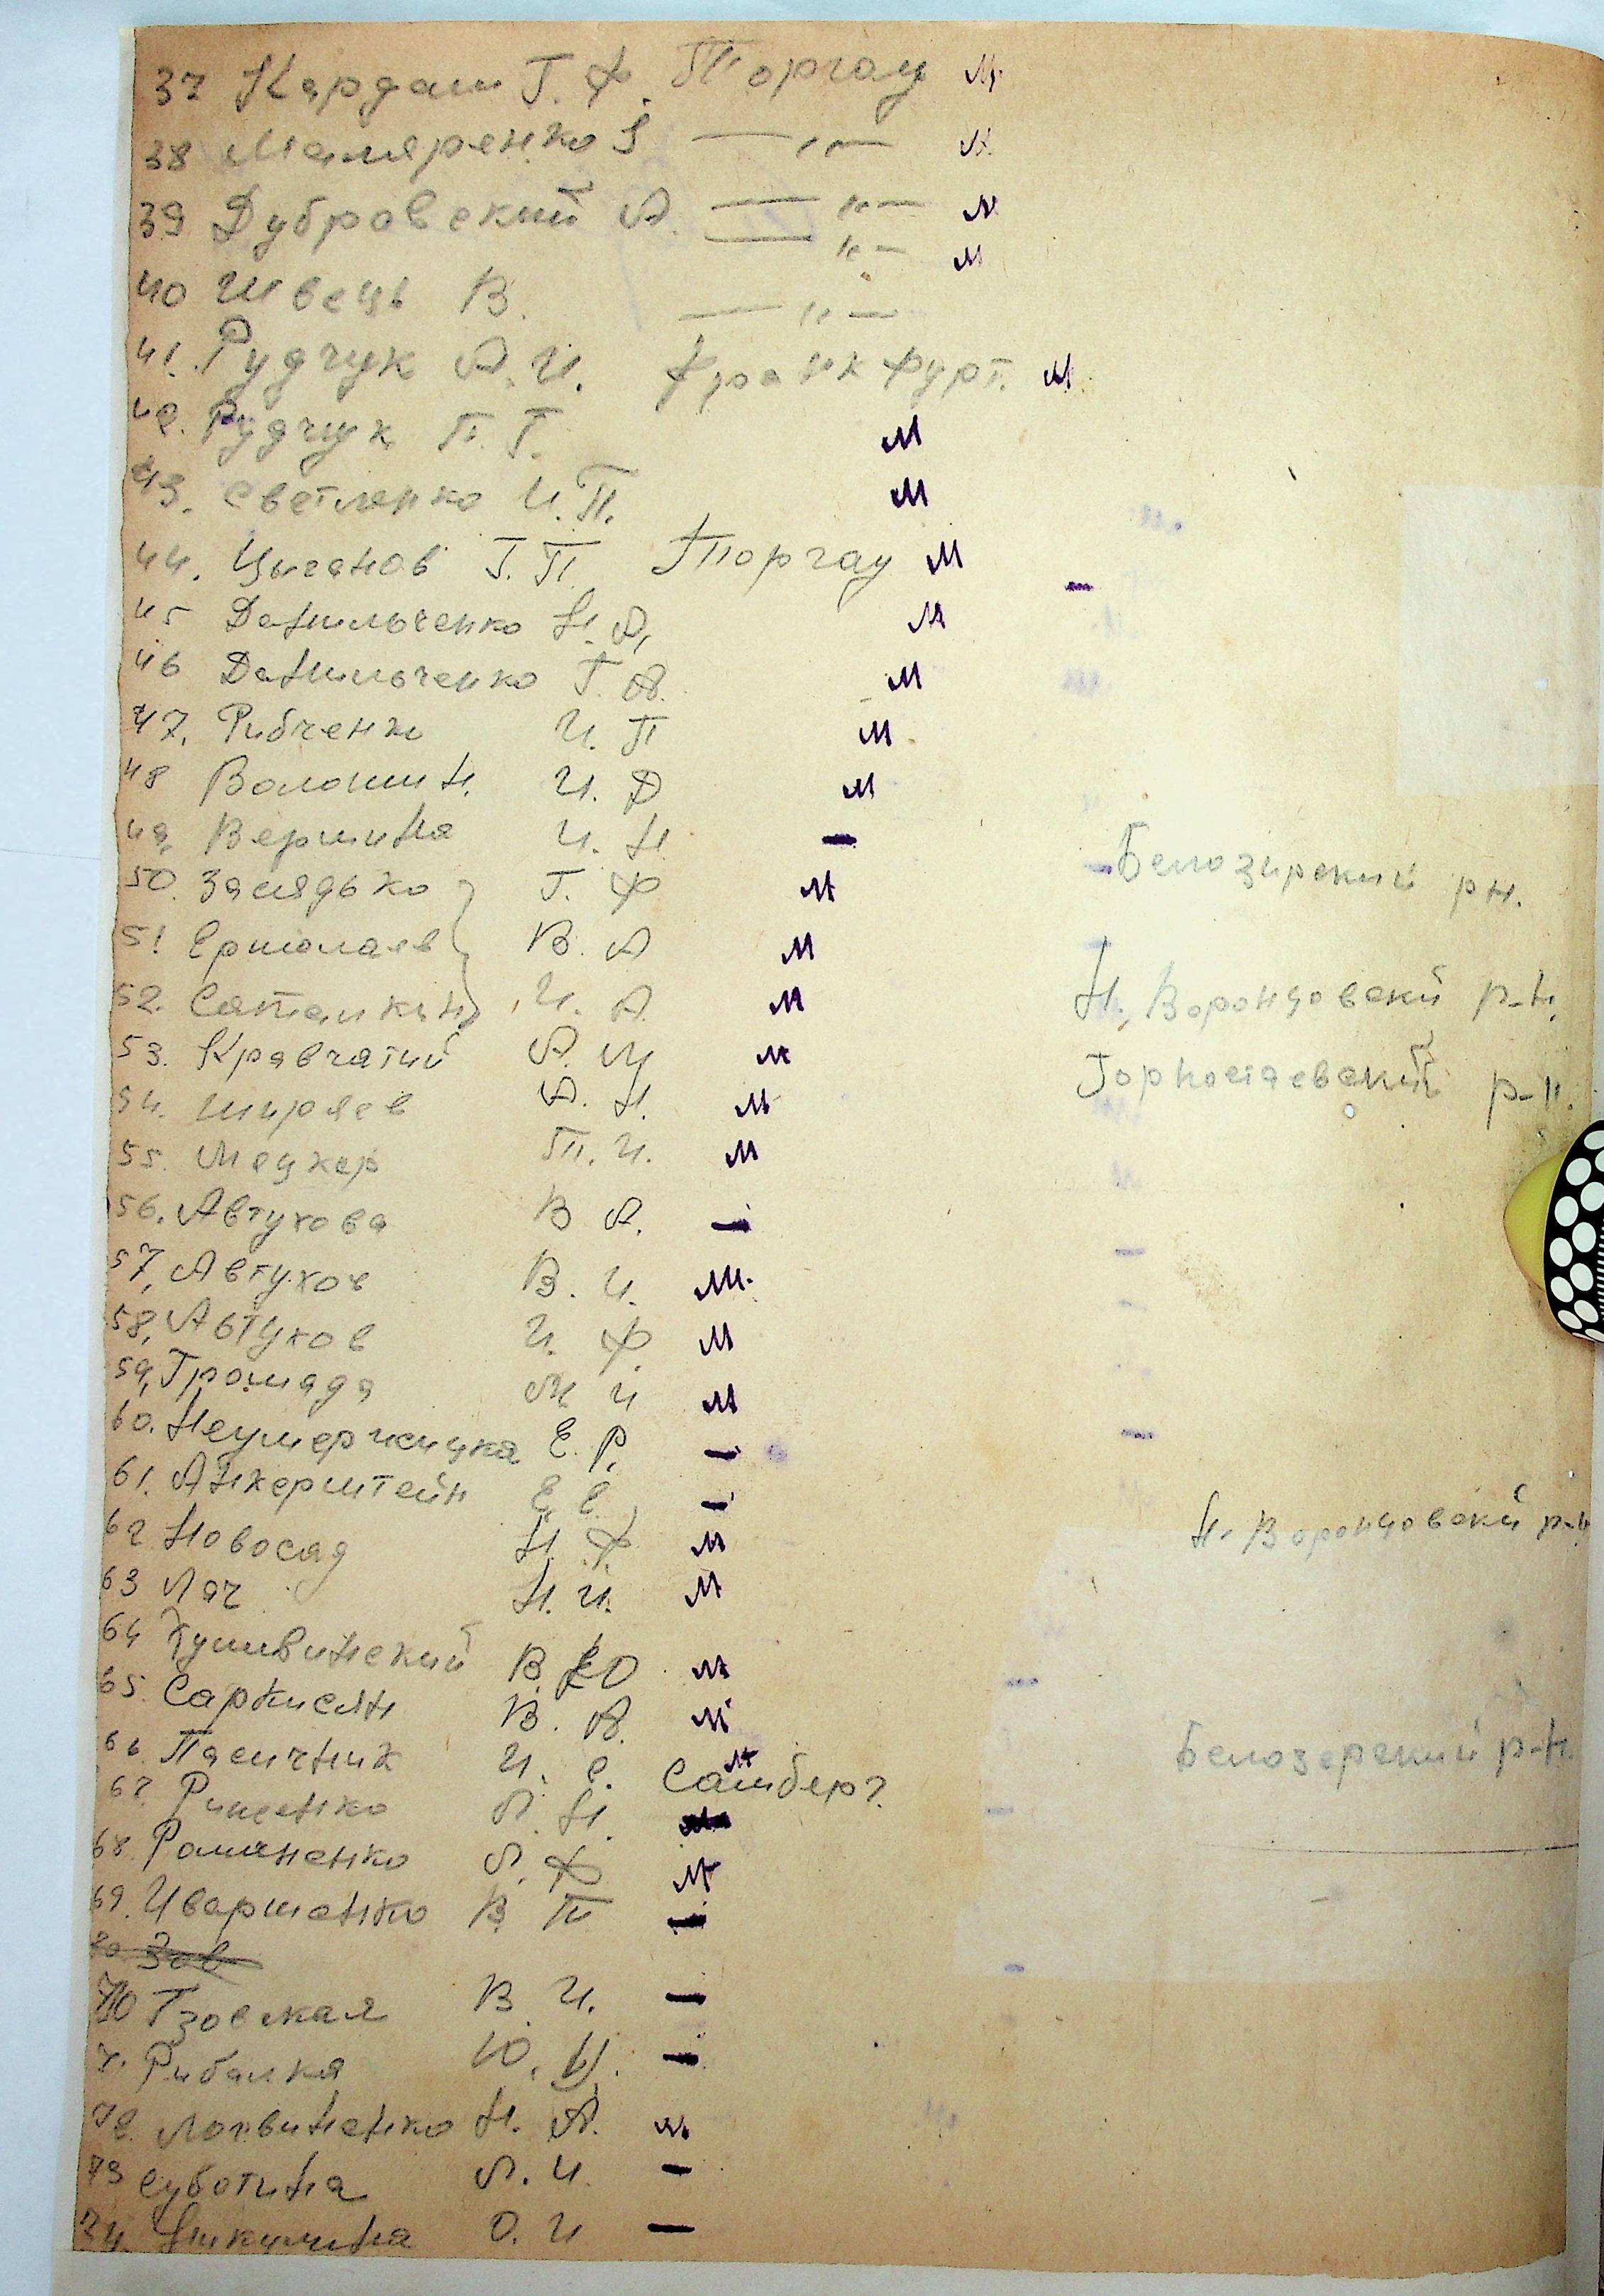 37 Кардаш Г. Ф. Торгау м
38 Маляренко — " — м
39 Дубровский А. — " — м
— " — м
40 Швець В. — " —
41. Рудчук А. И. Франкфурт. м
42. Рудчук П. Г. м
43. Светленко И. П. м
44. Цыганов Г. П. Торгау м —
45 Данильченко Н. А. м
46 Данильченко Г. А. м
47. Рибченко И. П м
48 Волошин. И. Д м
49. Вершина И. Н —
50. Замядько Г. Ф м Белозирский рн.
51 Ермолаев В. А м
52. Саталкин И. А. м Н. Воронцовский р-н.
53. Кравчатий А. м Горностаевский р-н.
54. Ширяев А. Н. м
55. Мецкер П. И. м
56. Автухова В А. —
57, Автухов В. И. м.
58, Автухов И. Ф. м
59, Громада М И м
60. Неумержицка Е. Р. —
61. Анкерштейн Е. Е. —
62 Новосад Н. Ф. м Н. Воронцовский р-н
63 Ляч Н. И. м
64 В. Ю м
65. Саркисян В. А. м
66. Пасичник И. С. м Белозерский р-н.
67. Л. Н.
68. Романенко Л. Ф м
69. Ивершенко В П —
70 Зов
70 Гзовская В. И. —
71. Рибалка Ю. —
72. Логвиненко Н. А. м
73 Суботина Л. И. —
74. О. И —